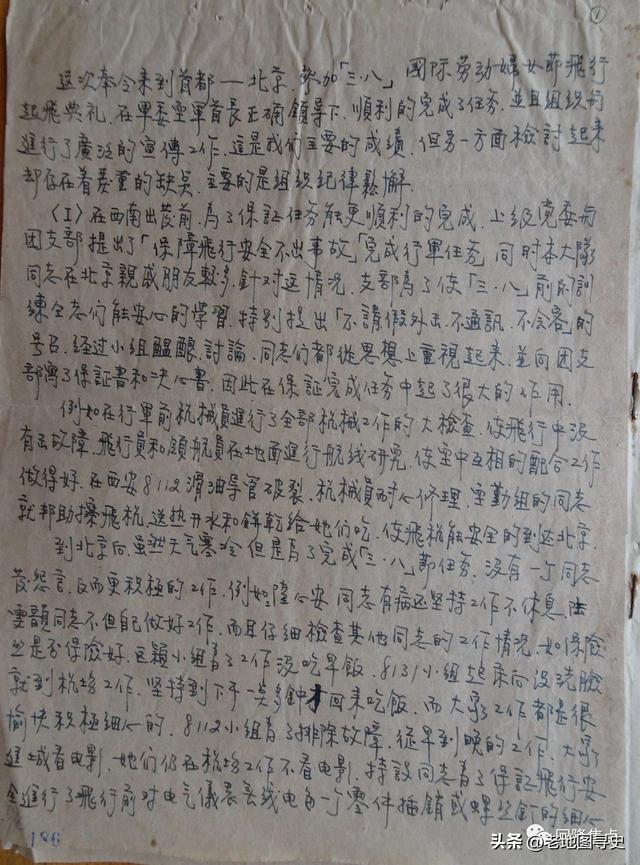 ①
这次奉令来到首都——北京，参加「三·八」国际劳动婦女節飛行
起飛典礼，在軍委空軍首長正确領导下，順利的完成了任务，並且組织和
進行了廣泛的宣傳工作，這是我们主要的成績，但另一方面檢討起来
却存在着嚴重的缺点，主要的是組织紀律鬆懈.
(I)在西南出發前，為了保証任务能更順利的完成，上級党委与
団支部提出了「保障飛行安全不出事故」「完成行軍任务」同时本大隊
同志在北京親戚朋友較多，針对這情况，支部為了使「三·八」前的訓
練全志们能安心的学習，特别提出「不請假外出，不通訊，不会客」的
号召，經过小組醞釀，討論，同志们都從思想上重視起来，並向团支
部寫了保証書和决心書，因此在保証完成任务中起了很大的作用.
例如在行軍前机械員進行了全部机械工作的大檢查，使飛行中没
有出故障，飛行員和領航員在地面進行航线研究，使空中互相的配合工作
做得好，在西安8112滑油导管破裂，机械員耐心修理，空勤組的同志
就帮助擦飛机，送热开水和餅乾给她们吃，使飛机能安全的到达北京.
到北京后，虽然天气寒冷，但是為了完成「三·八」節任务，没有一个同志
發怨言，反而更积極的工作，例如：陸心安同志有病还坚持工作不休息，陸
雲韻同志不但自己做好工作，而且仔細檢查其他同志的工作情况，如保險
丝是否保險好，這顆小組為了工作没吃早飯，8131小組起来后没洗臉
就到机場工作，坚持到下午一点多鐘才回来吃飯，而大家工作都是很
愉快积極細心的，8112小組為了排除故障，從早到晚的工作，大家
進城看电影，她们仍在机場工作不看电影，特設同志為了保証飛行安
全進行了飛行前对电气儀表無线电每一个零件插銷或螺丝釘的細心
186
网路焦点
头条 @老地图寻史